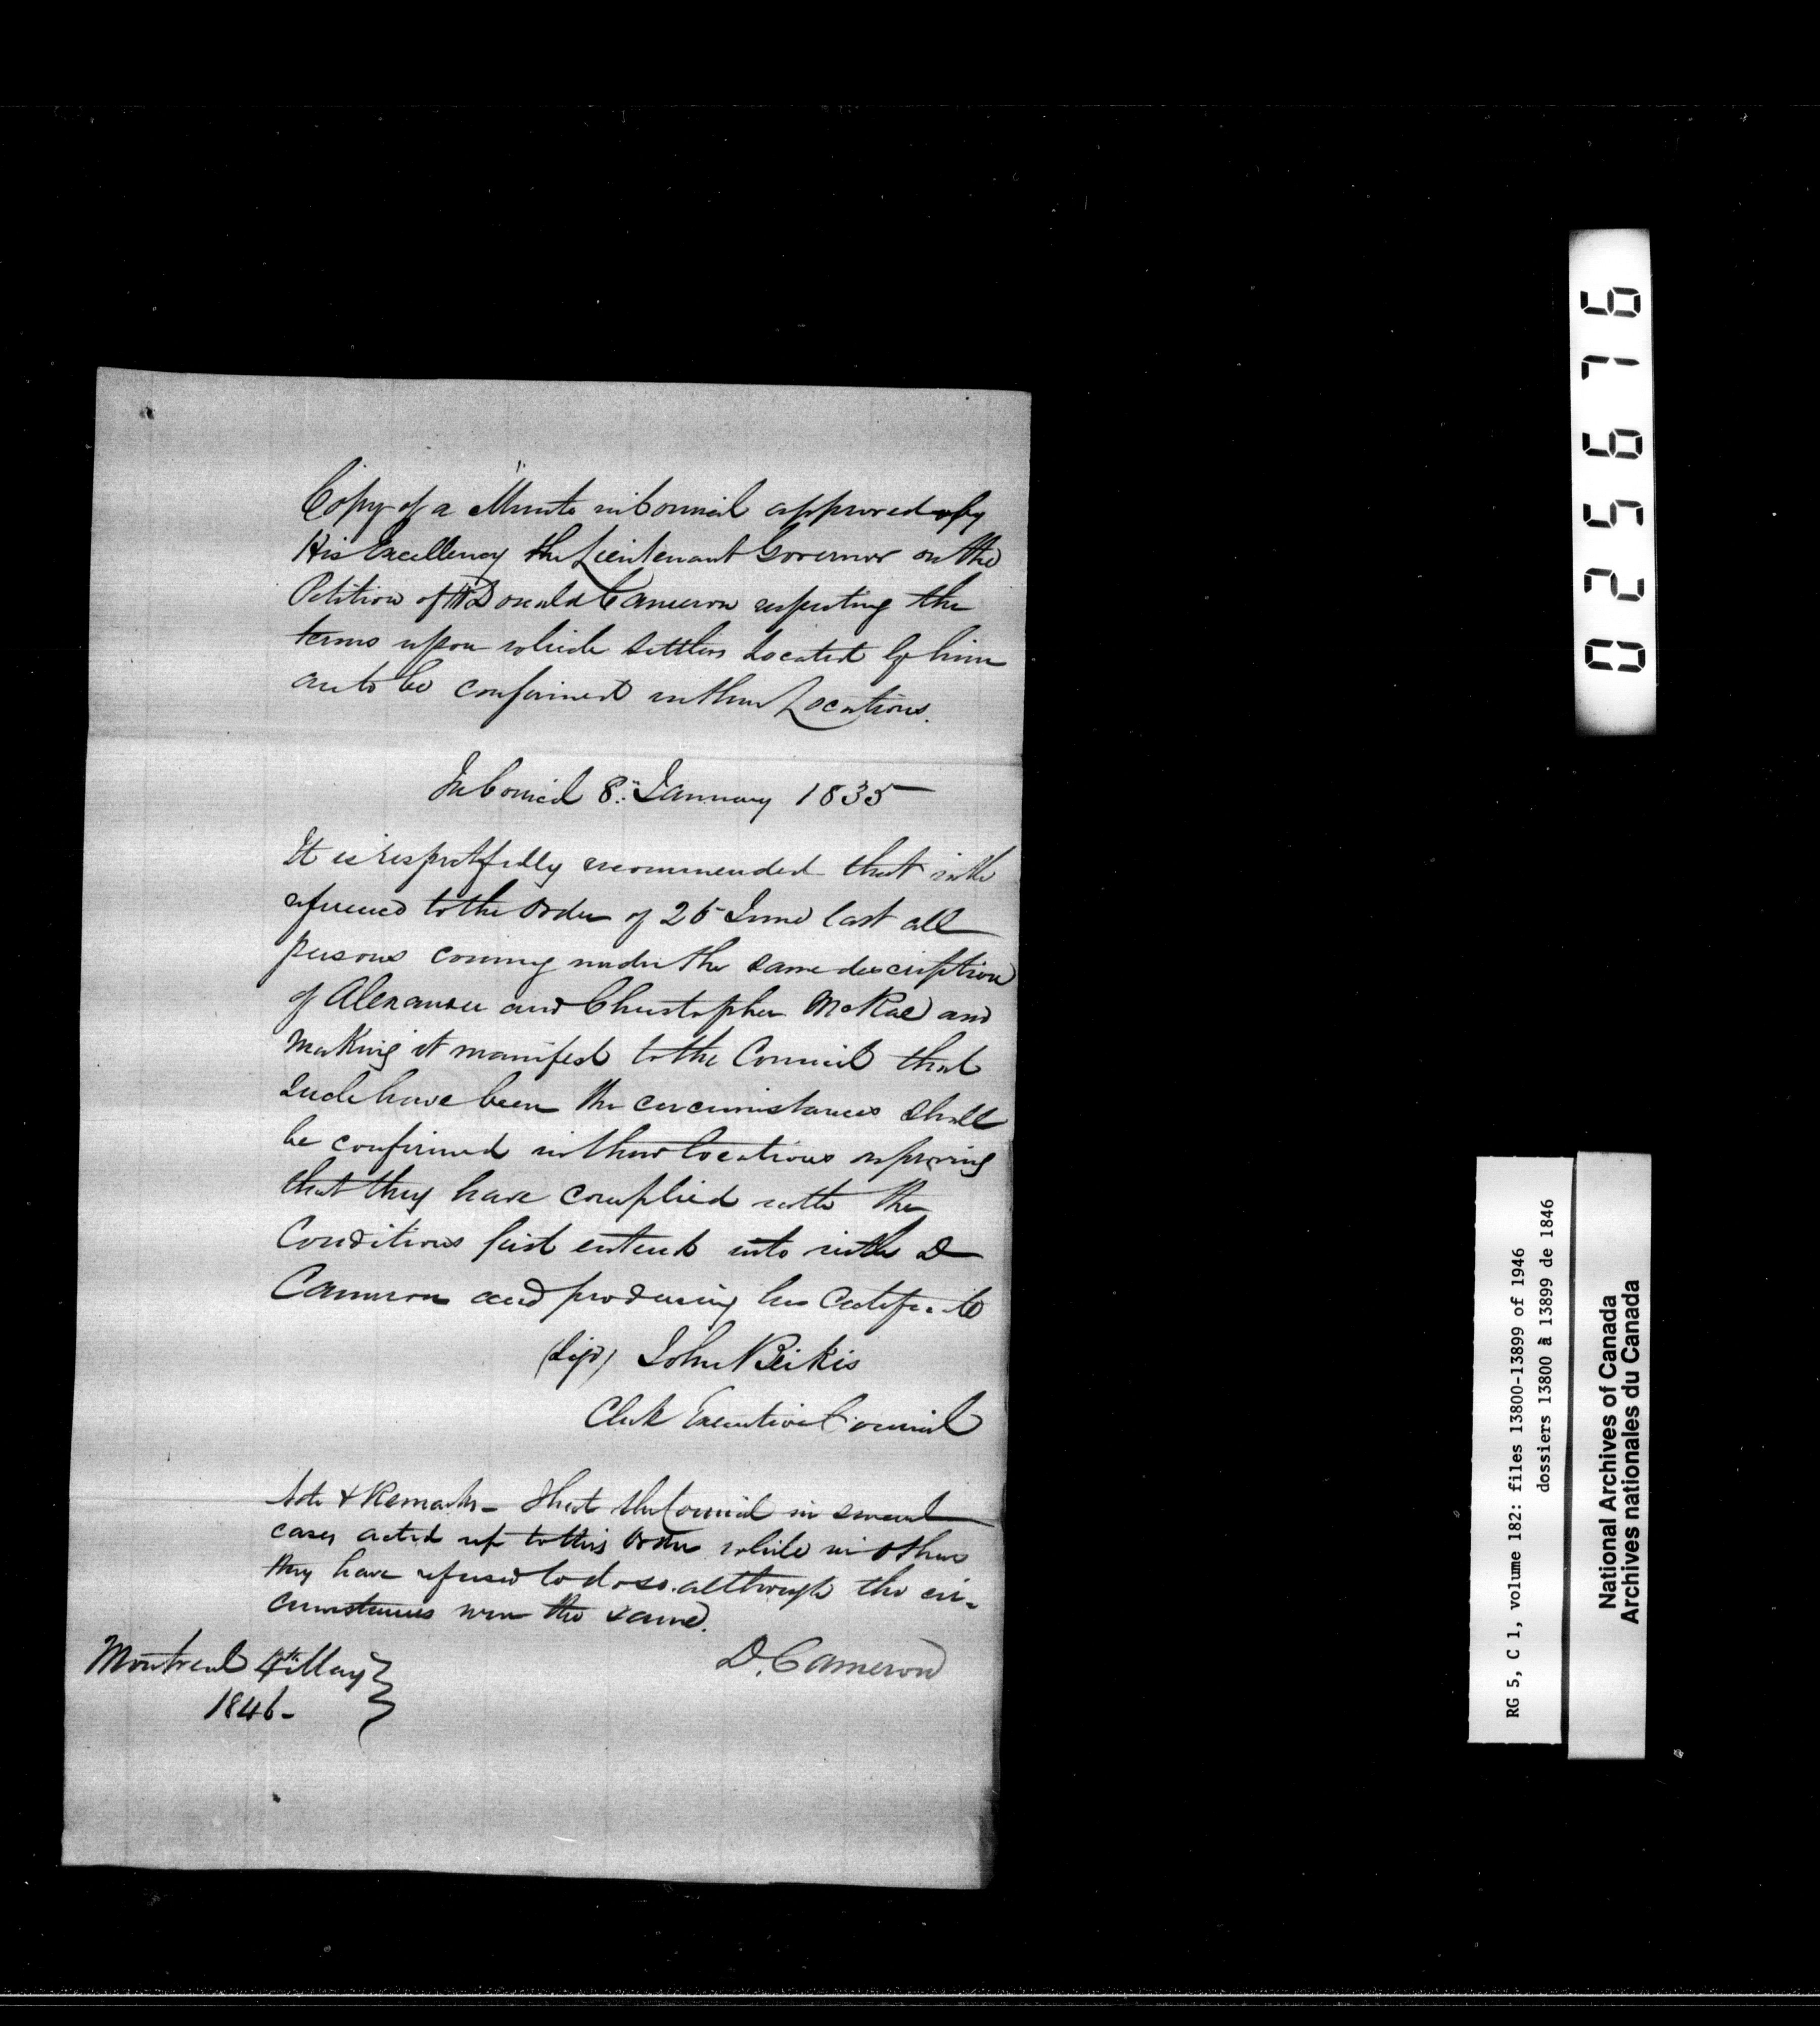 Copy of a Minute in Council approved by
His Excellency the Lieutenant Governor on the
Petition of Donald Cameron respecting the
terms upon which settlers Located by him
are to be confirmed in their Locations.
In Council 8th January 1835
It is respectfully recommended that in the
reference to the Order of 26 June last all
persons coming under the same description
of Alexander and Christopher McRae and
making it manifest to the Council that
such have been the circumstances shall
be confirmed in their locations on proving
that they have complied with the
Conditions first entered into with D
Cameron and producing his Certificate
(Sigd) John Beikie
Clerk Executive Council
Note & Remarks - That the Council in several
cases acted up to this Order while in others
they have refused to do so. although the cir-
cumstances were the same.
D. Cameron
Montreal 4th May
1846-
025676
RG 5, C 1, volume 182: files 13800-13899 of 1946
dossiers 13800 à 13899 de 1846
National Archives of Canada
Archives nationales du Canada